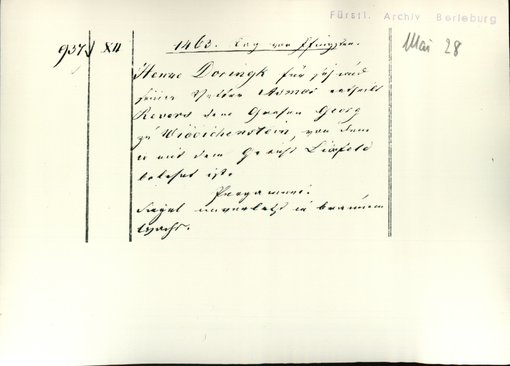 Fürstl. Archiv Berleburg
937 XII
1463. Tag von Pfingsten.
Mai 28
Henne Doringk für sich und
seinen Vetter Asmus ertheilt
Revers dem Grafen Georg
zu Widdichenstein, von dem
er mit dem Gericht Lixfeld
belehnt ist.
Pergament.
Siegel unverletzt in braunem
Wachs.